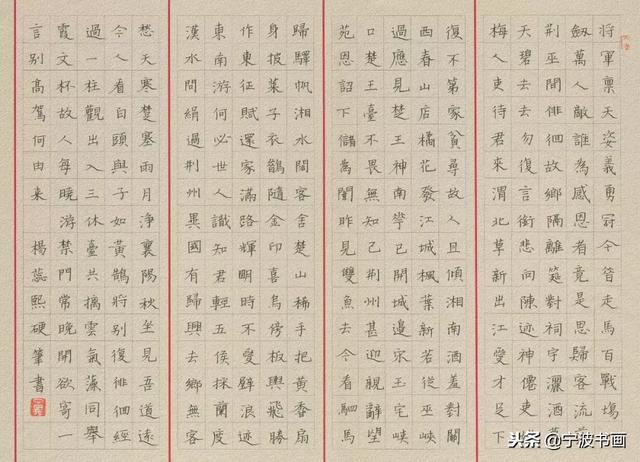 將軍稟天姿義勇冠今昔走馬百戰場
劍萬人敵誰為感恩者竟是思歸客流
荆巫間徘徊故鄉隔離筵對祠宇灑酒
天碧去去勿復言銜悲向陳迹神僊吏
梅人吏待君來渭北草新出江變才足下
復不第家貧尋故人且傾湘南酒羞對關
西春山店橘花發江城楓葉新若從巫峽
過應見楚王神南塋已開城邊宋王宅峽
口楚王臺不畏無知己荆州甚迎親辭望
苑恩詔下儲為闈昨見雙魚去今看駟馬
歸驛帆湘水闊客舍楚山稀手把黄香扇
身披萊子衣鵲隨金印喜烏傍板輿飛勝
作東征賦還家滿路輝明時不愛璧浪迹
東南游何必世人識知君輕五侯採蘭度
漢水問絹過荆州異國有歸興去鄉無客
愁天寒楚塞雨月淨襄陽秋坐見吾道遠
令人看白頭與子如黃鵠將別復徘徊經
過一柱觀出入三休臺共摘雲氣藻同舉
霞文杯故人每曉游禁門常晚開欲寄一
言別高駕何由來 楊蕊熙硬筆書
头条@宁波书画